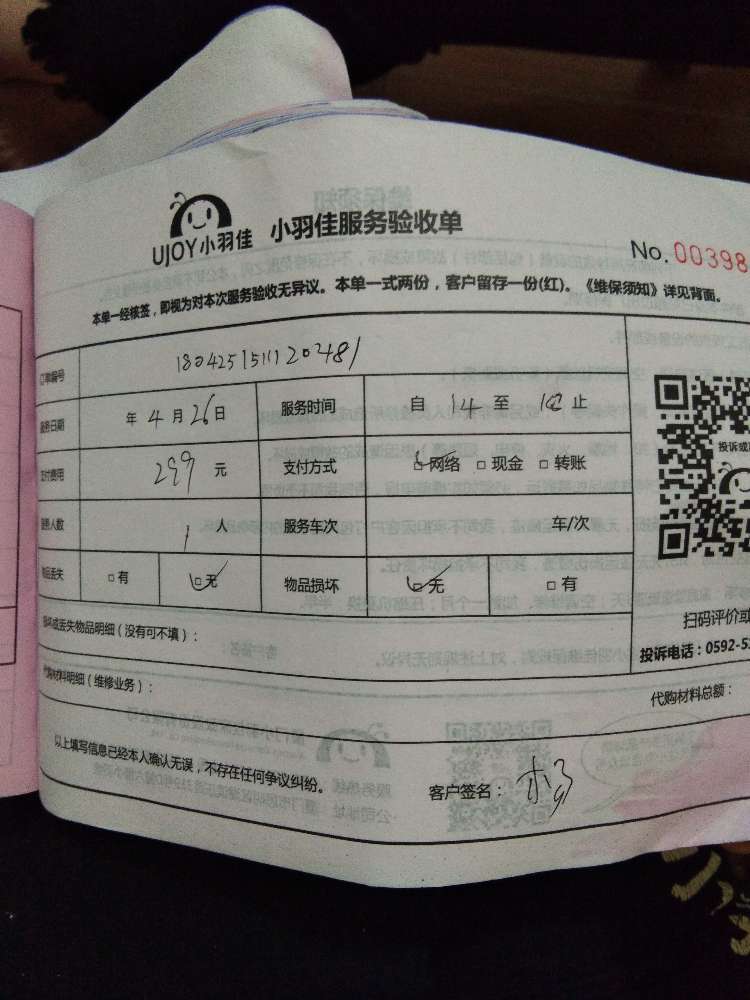 UJOY小羽佳 小羽佳服务验收单
No. 00398
本单一经核签，即视为对本次服务验收无异议。本单一式两份，客户留存一份(红)。《维保须知》详见背面。
订单编号 18042515111202481
服务日期 年 4 月 26 日 服务时间 自 14 至 止
支付费用 299 元 支付方式 网络 □ 现金 □ 转账
服务人数 1 人 服务车次 车/次
物品丢失 □ 有 无 物品损坏 无 □ 有
损坏或丢失物品明细（没有可不填）：
代购材料明细（维修业务）：
投诉或
扫码评价或
投诉电话：0592-5
代购材料总额：
以上填写信息已经本人确认无误，不存在任何争议纠纷。
客户签名：